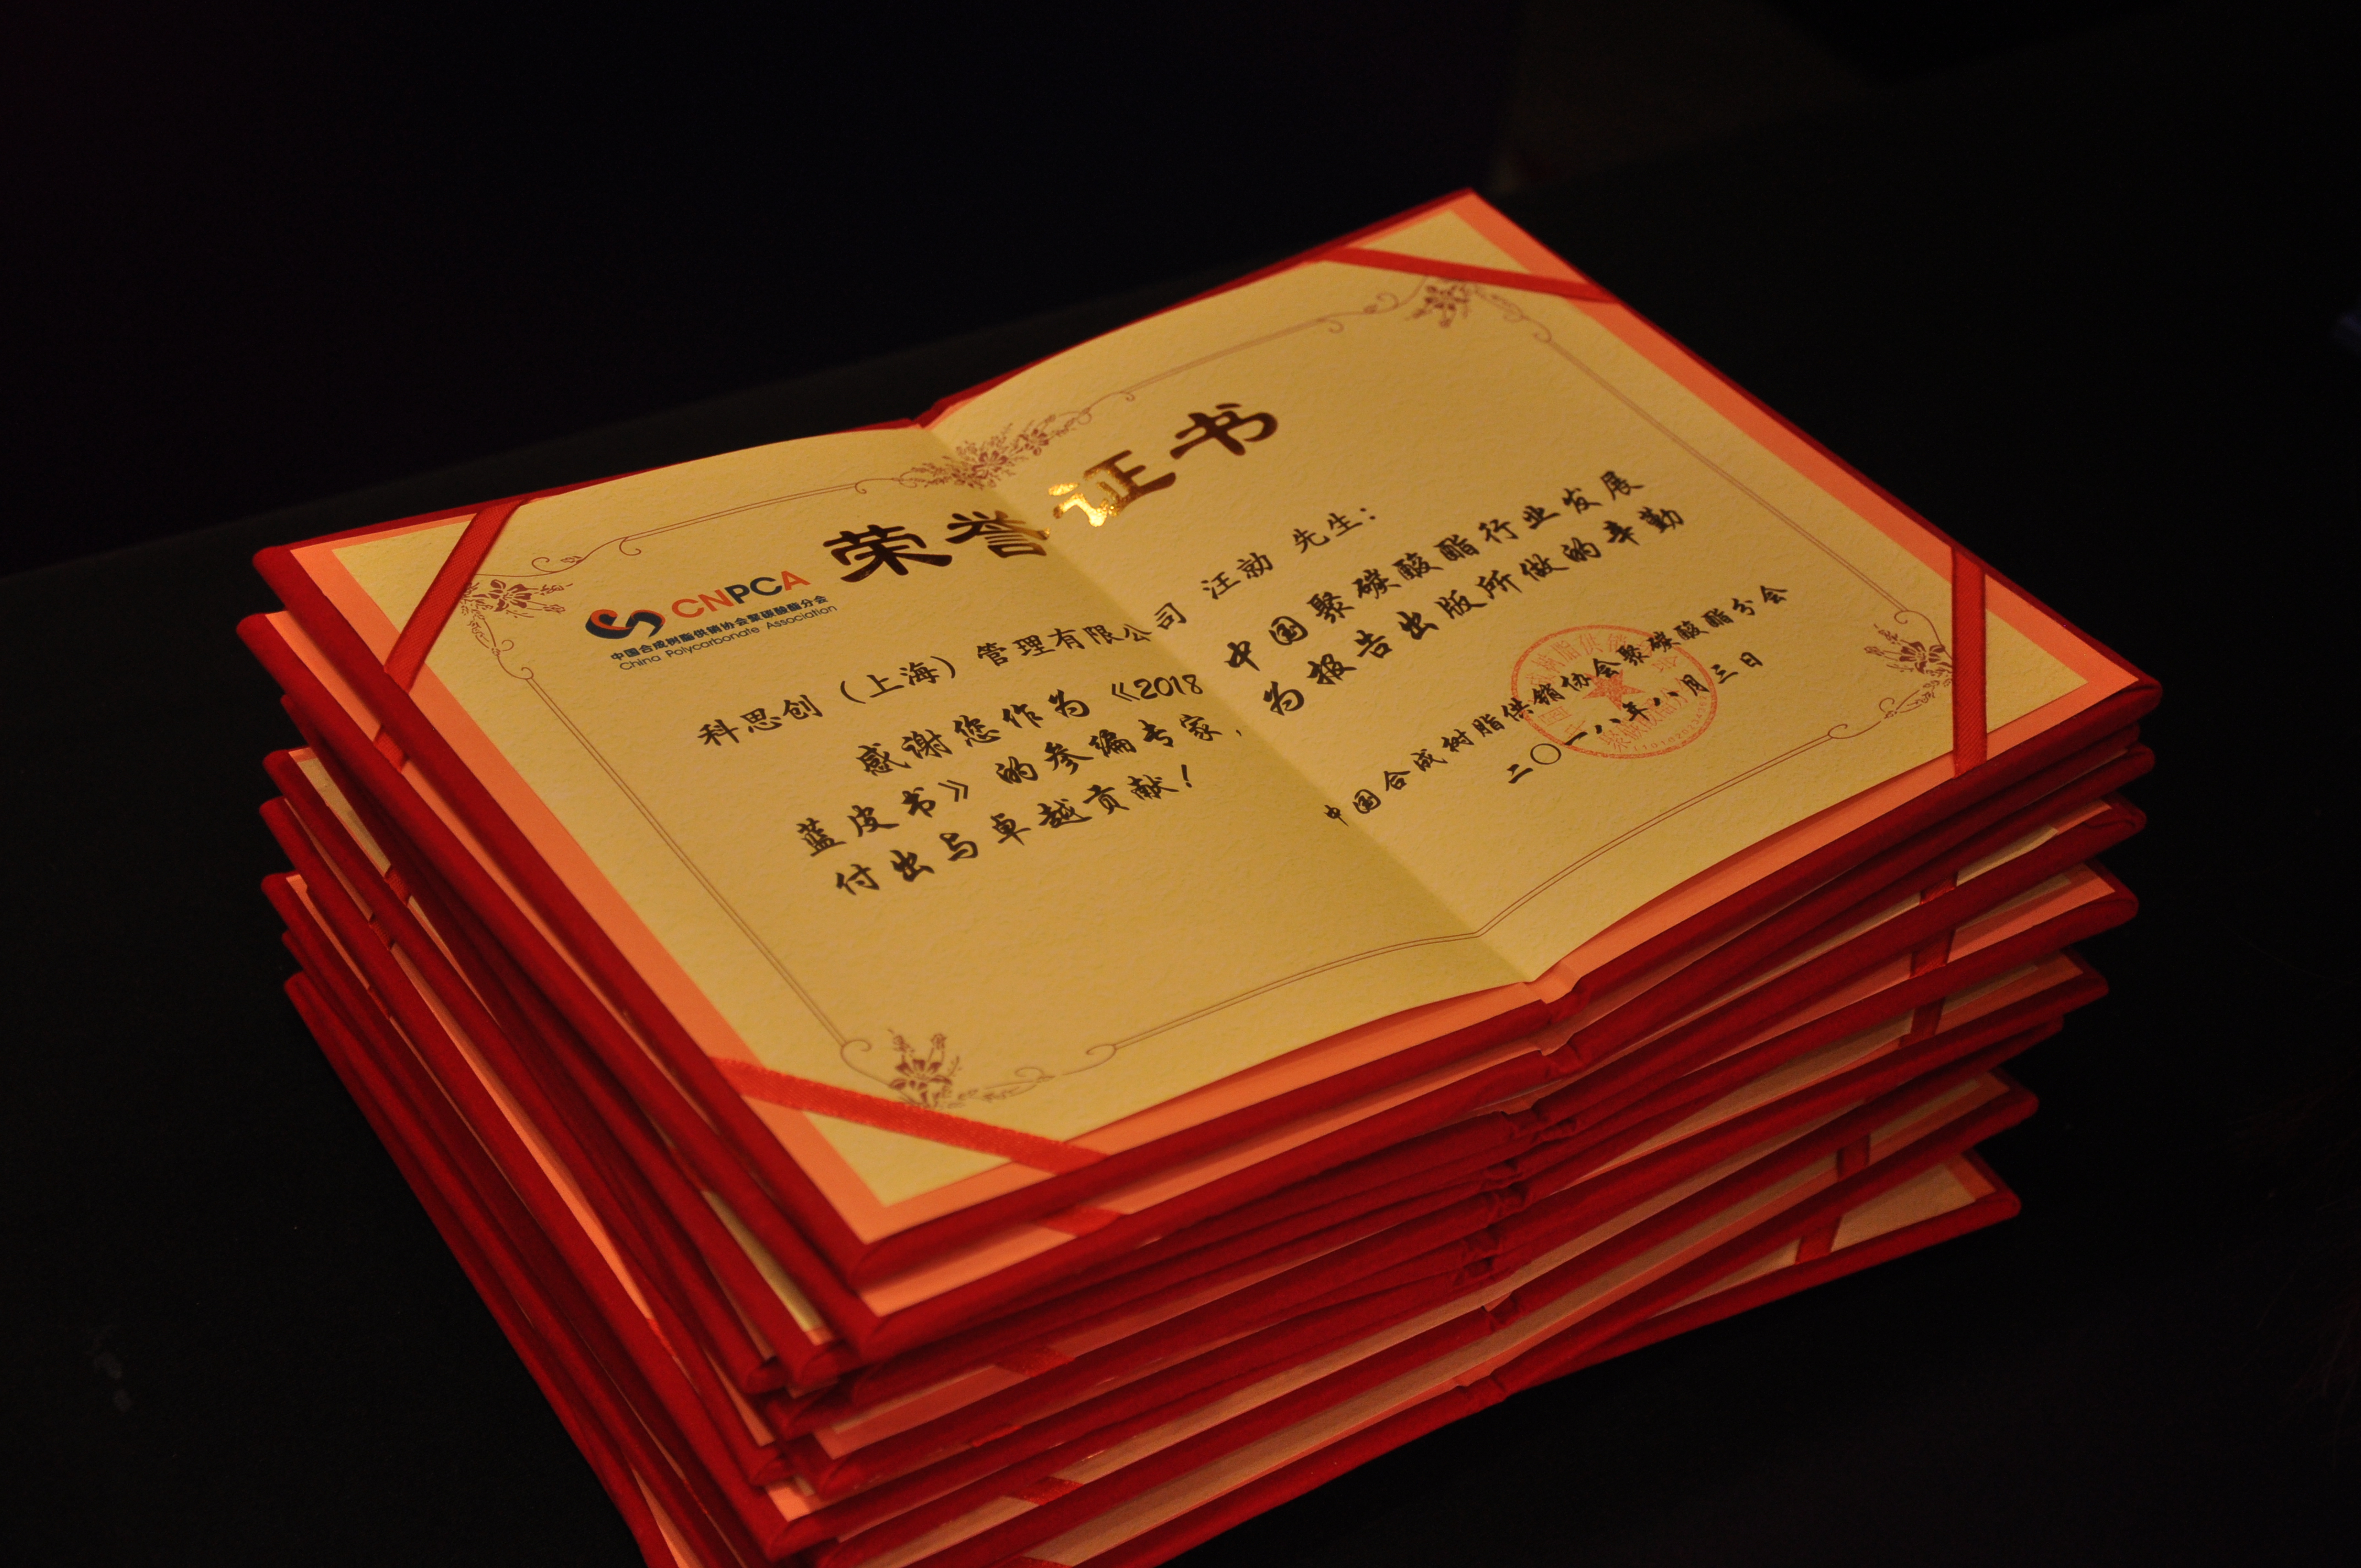 荣誉证书
CNPCA
中国合成树脂供销协会聚碳酸酯分会
China Polycarbonate Association
科思创（上海）管理有限公司 汪勍 先生：
感谢您作为《2018 中国聚碳酸酯行业发展
蓝皮书》的参编专家，为报告出版所做的辛勤
付出与卓越贡献！
中国合成树脂供销协会聚碳酸酯分会
二〇一八年八月三日